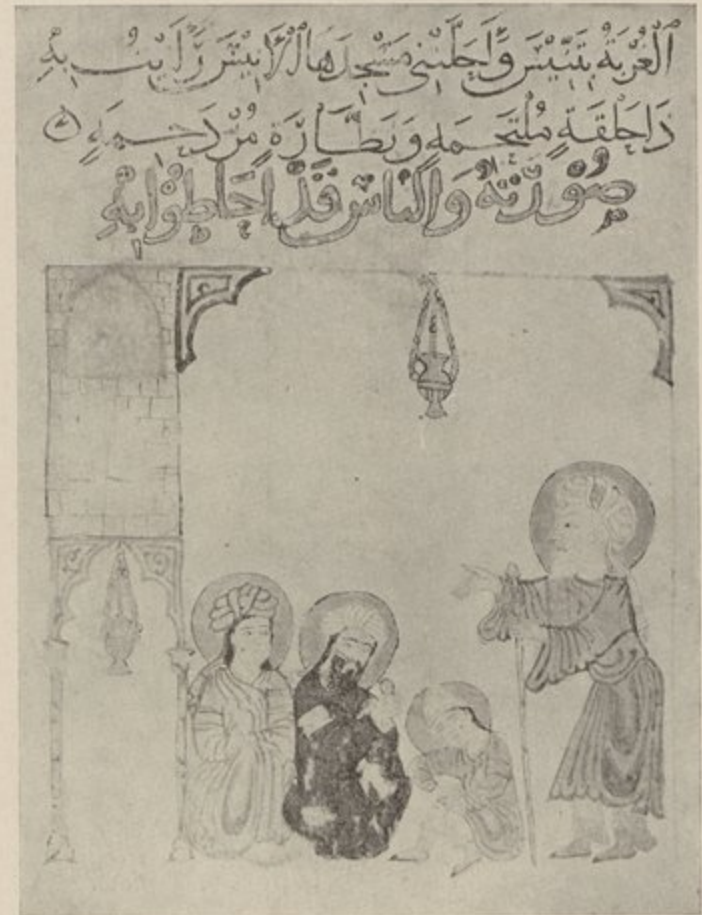 اَلْغُرْبَةُ بِتِنِّيْسَ وَاَحَلَّتْنِى مَسْجِدَهَا الْاَنِيْسَ رَاَيْتُ بِهِ
ذَا حَلْقَةٍ مُلْتَحِمَةٍ وَنَظَّارَةٍ مُزْدَحِمَةٍ
صُوْرَتُهُ وَالنَّاسُ قَدْ اَحَاطُوْا بِهِ